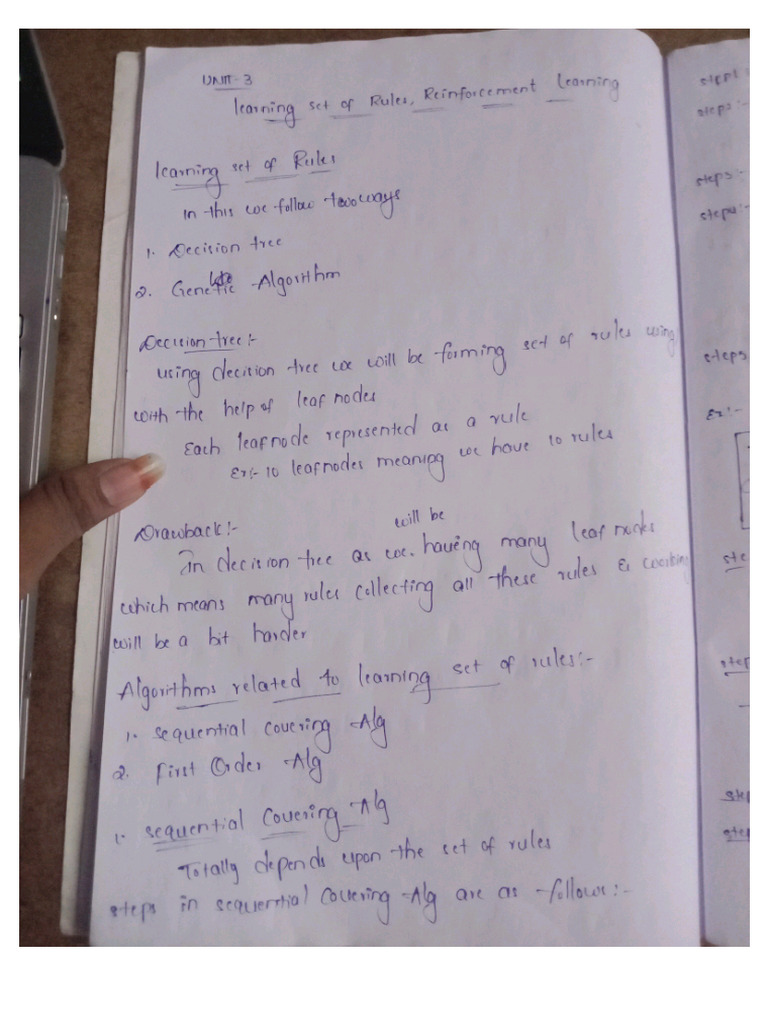 UNIT-3
learning set of Rules, Reinforcement Learning
learning set of Rules
In this we follow two ways
1. Decision tree
2. Genetic Algorithm
Decision tree:-
using decision tree we will be forming set of rules using
with the help of leaf nodes
Each leafnode represented as a rule
Ex:- 10 leafnodes meaning we have 10 rules
Drawback:-
will be
In decision tree as we having many leaf nodes
which means many rules collecting all these rules &
will be a bit harder
Algorithms related to learning set of rules:-
1. sequential covering Alg
2. First Order Alg
1. sequential Covering Alg
Totally depends upon the set of rules
steps in sequential covering Alg are as follows:-
step1
step2:-
step3:-
step4:-
steps
Ex:-
ste
step
step
step